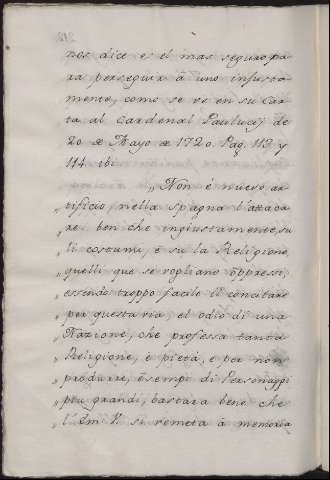 nos dice es el mas seguro pa
ra perseguir à uno injusta
mente, como se ve en su Car
ta al Cardenal Paulucej de
20 de Mayo de 1720. Pag. 113 y
114 ibi
„ Non é nuevo ar
„ tificio, nella Spagna l'attaca
„ re ben che ingiustamente, su
„ li costumi, è su la Religione,
„ quelli que se vogliano oppressi,
„ essendo troppo facile il concitare
„ per questa via, el odio di una
„ Nazione, che professa tanta
„ Religione, è pietà, e per non
„ produrre, esempi di Personaggi
„ piu grandi, bastara bene che
„ l'Em V. si remeta à memoria